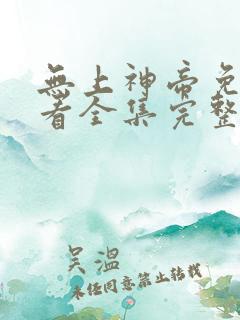 無上神帝免
看全集完整
吴溫
未经同意禁止转载